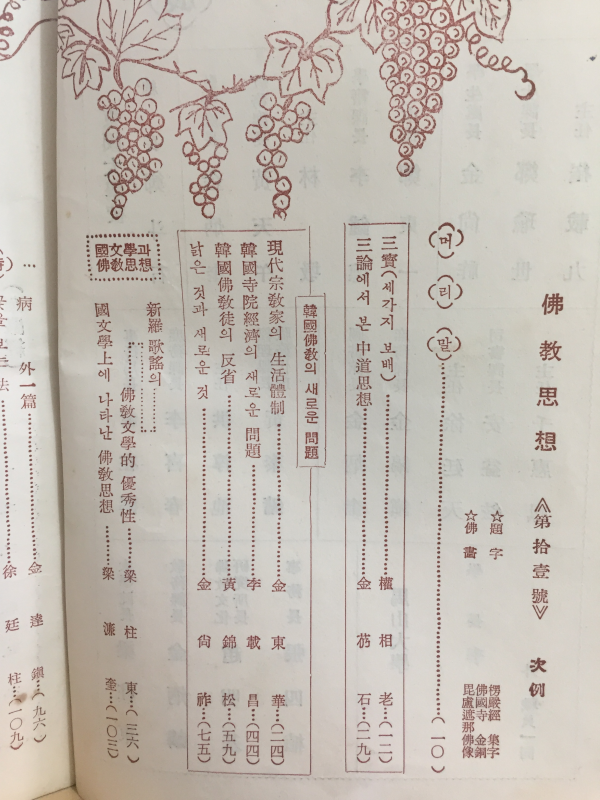 佛教思想 《第拾壹號》 次例
☆題字 楞嚴經 集字
☆佛畵 佛國寺 金銅
毘盧遮那佛像
(머)(리)(말)…(一〇)
三寶(세가지 보배)…權相老…(一二)
三論에서 본 中道思想…金芿石…(二九)
韓國佛敎의 새로운 問題
現代宗敎家의 生活體制…金東華…(二四)
韓國寺院經濟의 새로운 問題…李載昌…(四四)
韓國佛敎徒의 反省…黃錦松…(五九)
낡은 것과 새로운 것…金尙祚…(七五)
國文學과
佛敎思想
新羅 歌謠의
佛敎文學的 優秀性…梁柱東…(三六)
國文學上에 나타난 佛敎思想…梁濂奎…(一〇三)
…病 外一篇…金達鎭…(九六)
徐廷柱…(一〇九)